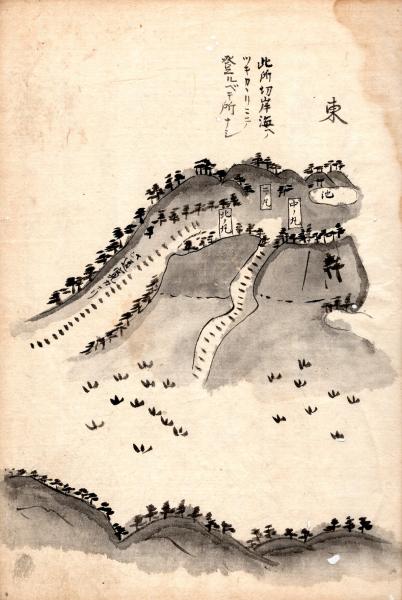 東
此所切岸海ヘ
ツキカヽリニテ
登ルベキ所ナシ
池
中ノ丸
二ノ丸
北ノ丸